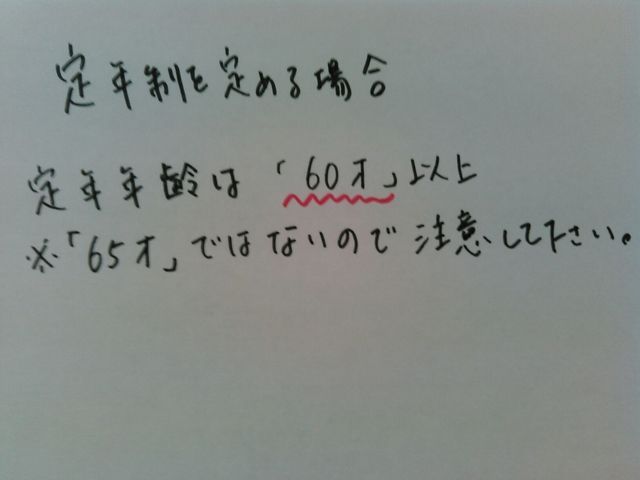 定年制を定める場合
定年年齢は「60才」以上
※「65才」ではないので注意して下さい。